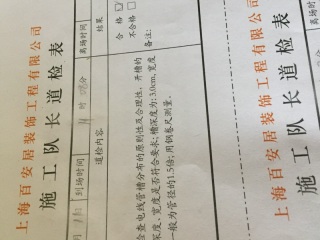 上海百安居装饰工程有限公司
施工队长道检表
到场时间
时
分
离场时间
道检内容
结果
检查电线管槽分布的原则性及合理性，开槽的
深度，宽度是否符合要求：槽深度为：3.0cm，宽度
一般为管径的1.5倍；用钢卷尺测量.
合 格
不合格
备注:
上海百安居装饰工程有限公司
施工队长道检表